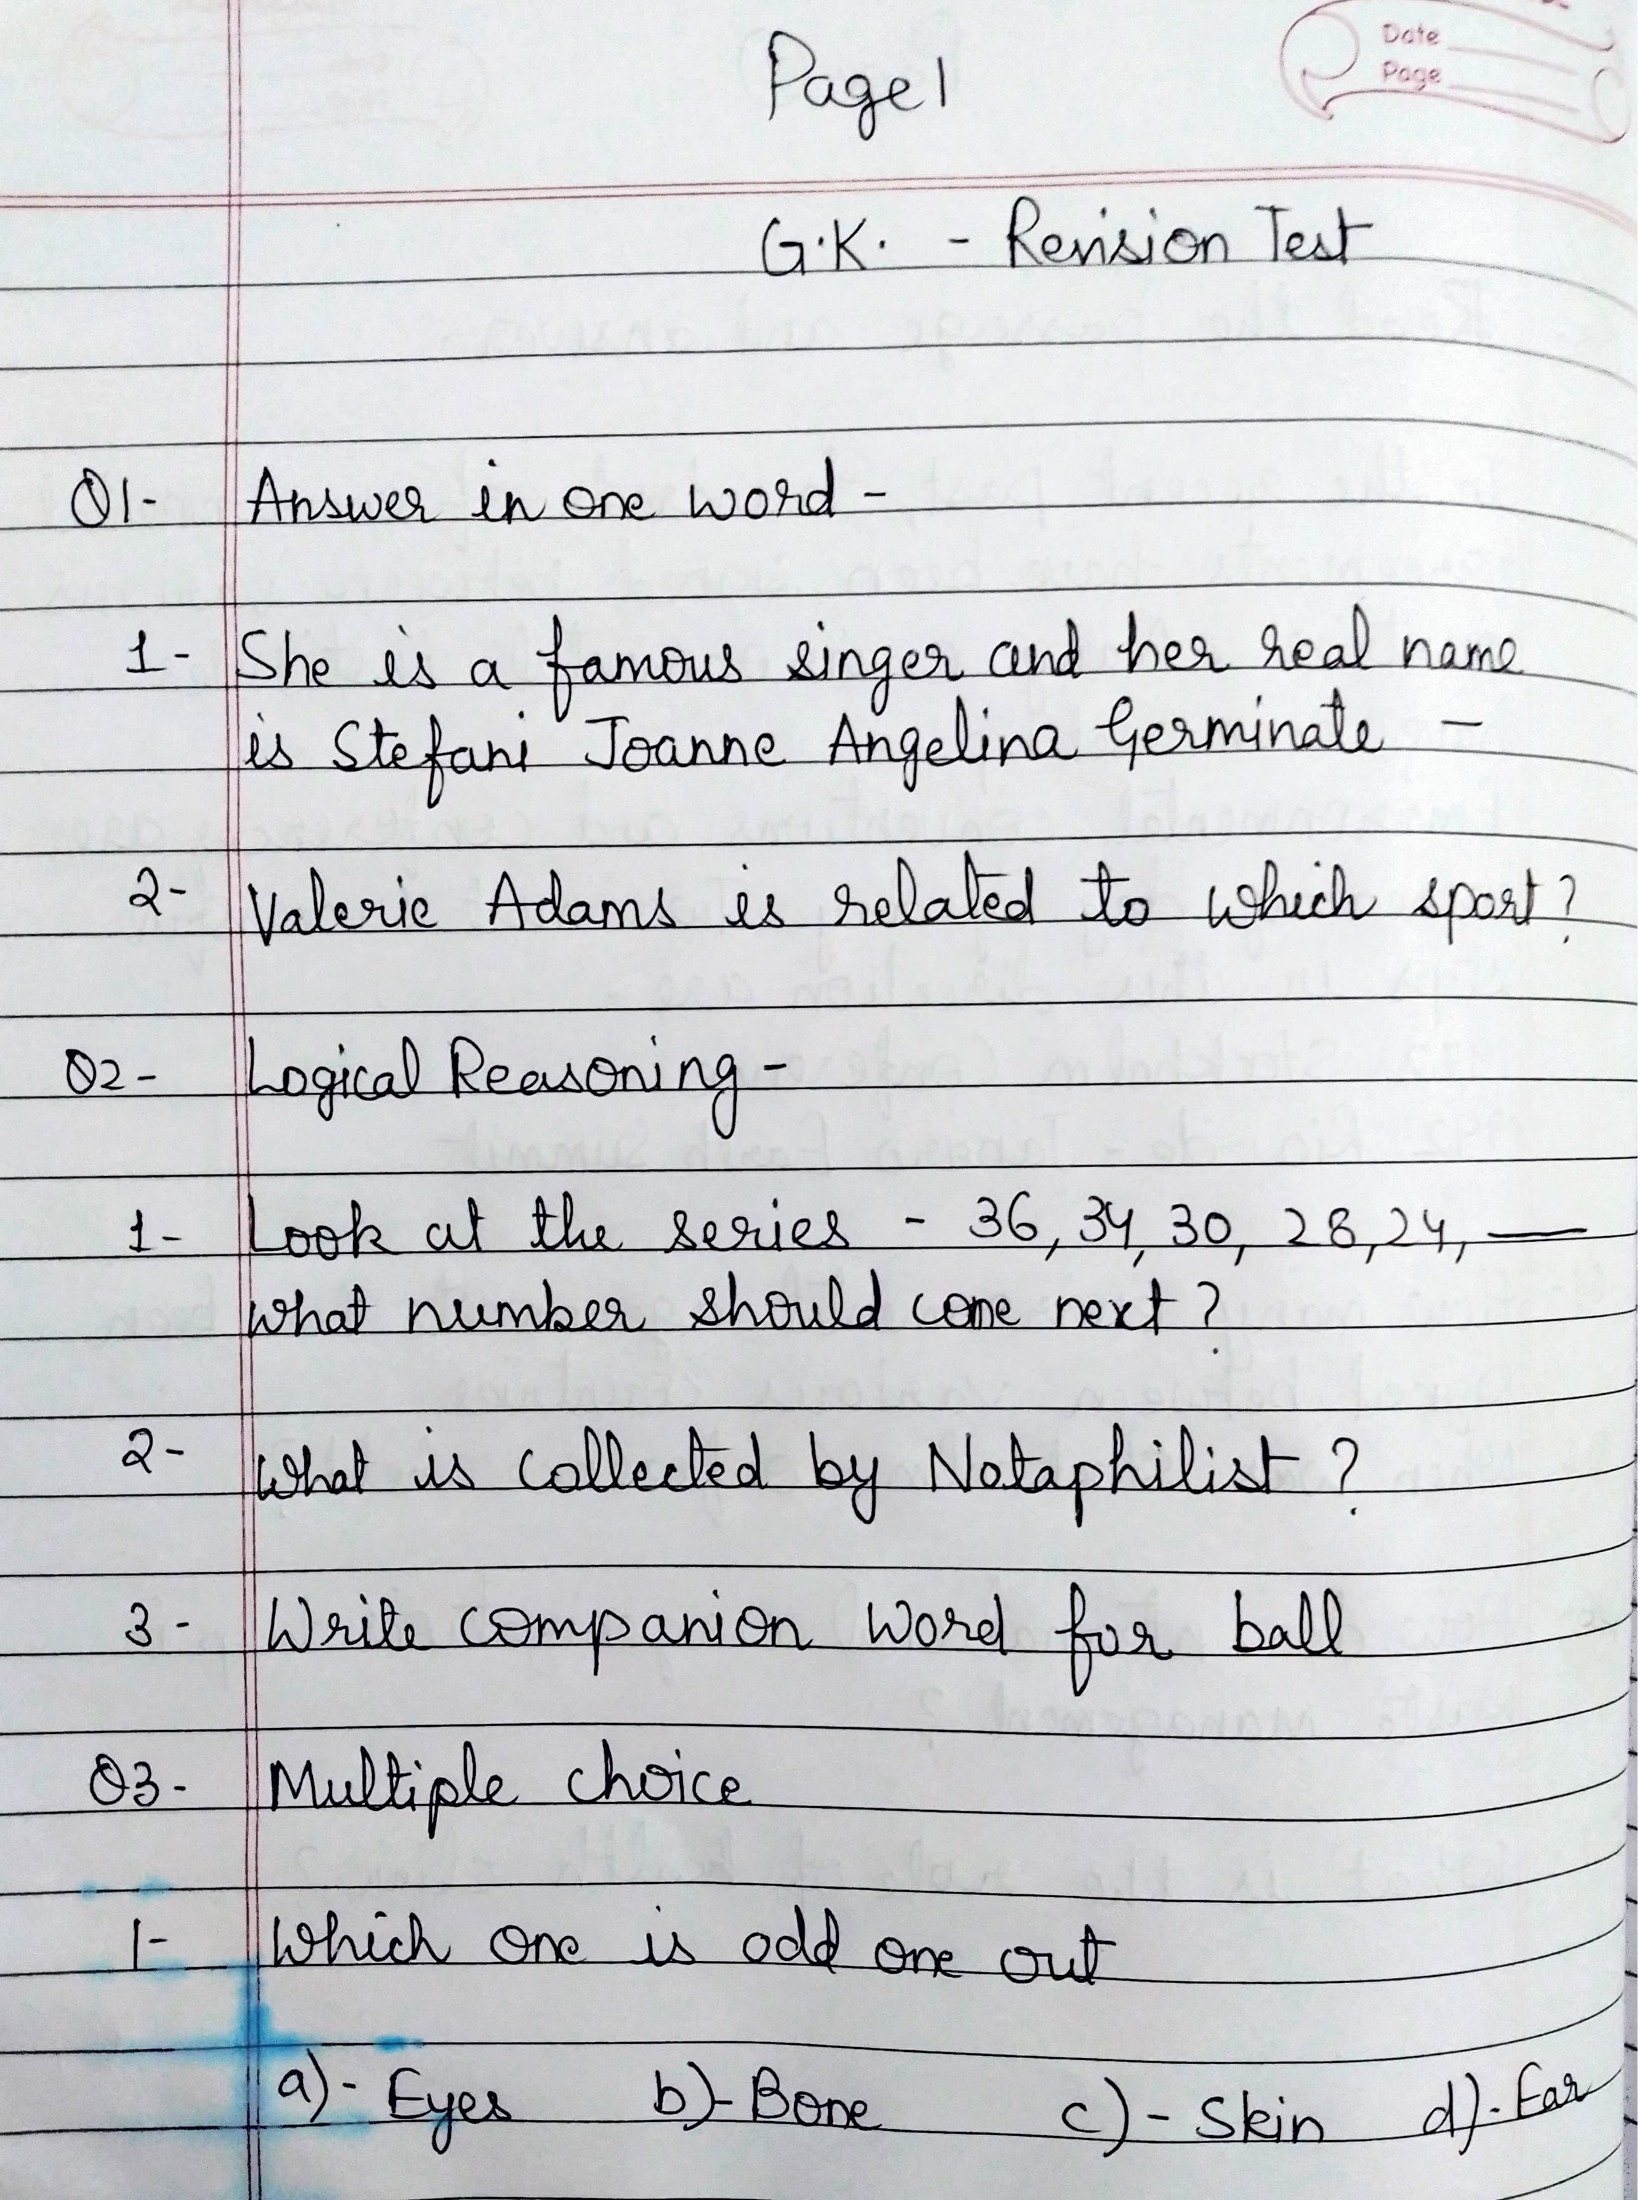 Date
Page
Page 1
G.K. - Revision Test
Q1- Answer in one word -
1- She is a famous singer and her real name
is Stefani Joanne Angelina Germinate -
2- Valerie Adams is related to which sport?
Q2- Logical Reasoning -
1- Look at the series - 36, 34, 30, 28, 24, —
What number should come next?
2- What is collected by Notaphilist?
3- Write companion word for ball
Q3- Multiple choice
1- Which one is odd one out
a)- Eyes b)- Bone c)- Skin d)- Ear